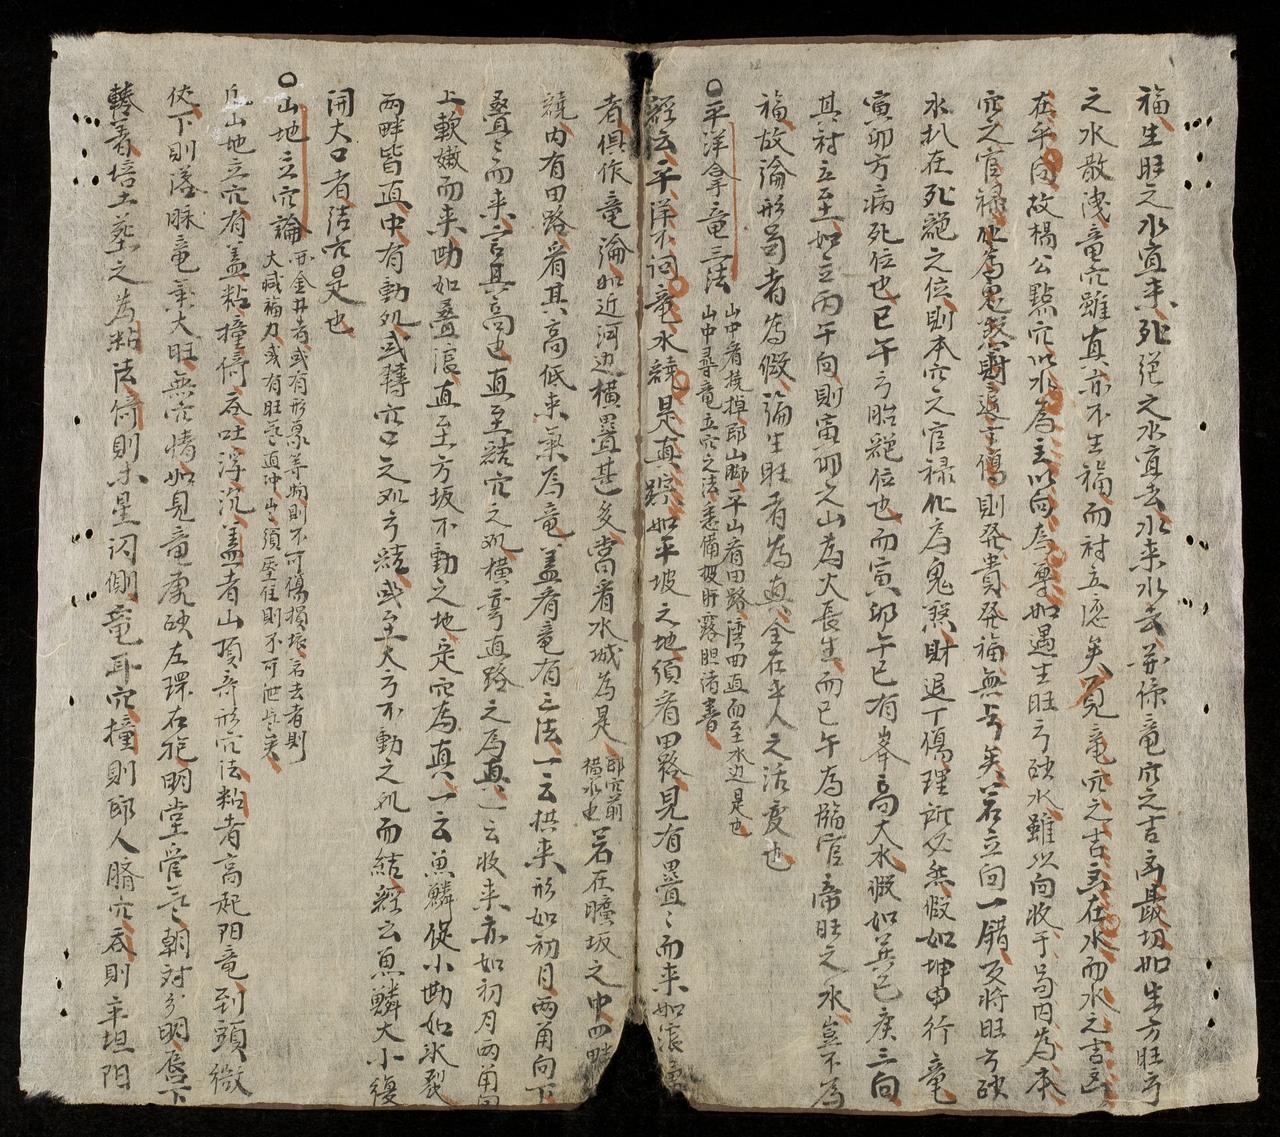 福生旺之水宜来死绝之水宜去水来水去并係竜穴之吉凶最切如生方旺亏
之水散洩竜穴雖真亦不生福而討立应矣況竜穴之吉凶在水而水之吉凶
在乎向故楊公點穴以水為主以向為尊如遇生旺亏砂水雖以向收于局内為本
穴之官禄化為鬼煞財退丁傷則発貴発福無亏矣若立向一錯反将旺亏砂
水扒在死絕之位則本穴之官禄化為鬼煞財退丁傷理所必然假如坤申行竜
寅卯方病死位也巳午亏胎絕位也而寅卯午巳有峯高大水假如巽巳庚三向
其討立至如立丙午向則寅卯之山為火長生而巳午為臨官帝旺之水豈不為
福故論形局者為假論生旺者為真全在乎人之活变也
〇平洋拿竜三法
山中看技掉即山脚平山看田路湾曲直而至水边是也
山中尋竜立穴之法悉備披肝露胆清書
經云平洋不问竜水繞是真踪如平坡之地須看田路見有疊〻而来如浪
者俱作竜論如近河边橫疊甚多當看水城為是
即穴前
橫水也
若在曠坂之中四畔
繞内有田路看其高低来氣為竜盖看竜有三法一云拱来形如初月两角向下
疊〻而来言其高也直至結穴之処橫弯直路之為真一云收来亦如初月两角向
上軟嫩而来坳如疊浪直至方坂不動之地定穴為真一云魚鱗促小坳如氷裂
两畔皆直中有動処或轉穴口之処亏結或至大亏不動之処而結經云魚鱗大小復
開大口者結穴是也
〇山地立穴論
开金井者或有形景等物則不可傷損振名去者則
大减福力或有旺气直冲山須壓住則不可泄气矣
凡山地立穴有盖粘撞倚吞吐浮沉盖者山頂奇形穴法粘者高起阳竜到頭微
伏下則落脉竜氣大旺無穴情如見竜虎砂左環右抱明堂管气朝対分明唇下
轉者培土葬之為粘法倚則木星闪側竜耳穴撞則即人脐穴吞則平坦阳